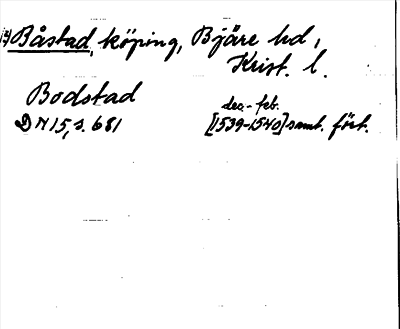 Båstad, köping, Bjäre hd,
Krist. l.
Bodstad
dec.-feb.
DN 15, s. 681 [1539-1540] samt. fört.